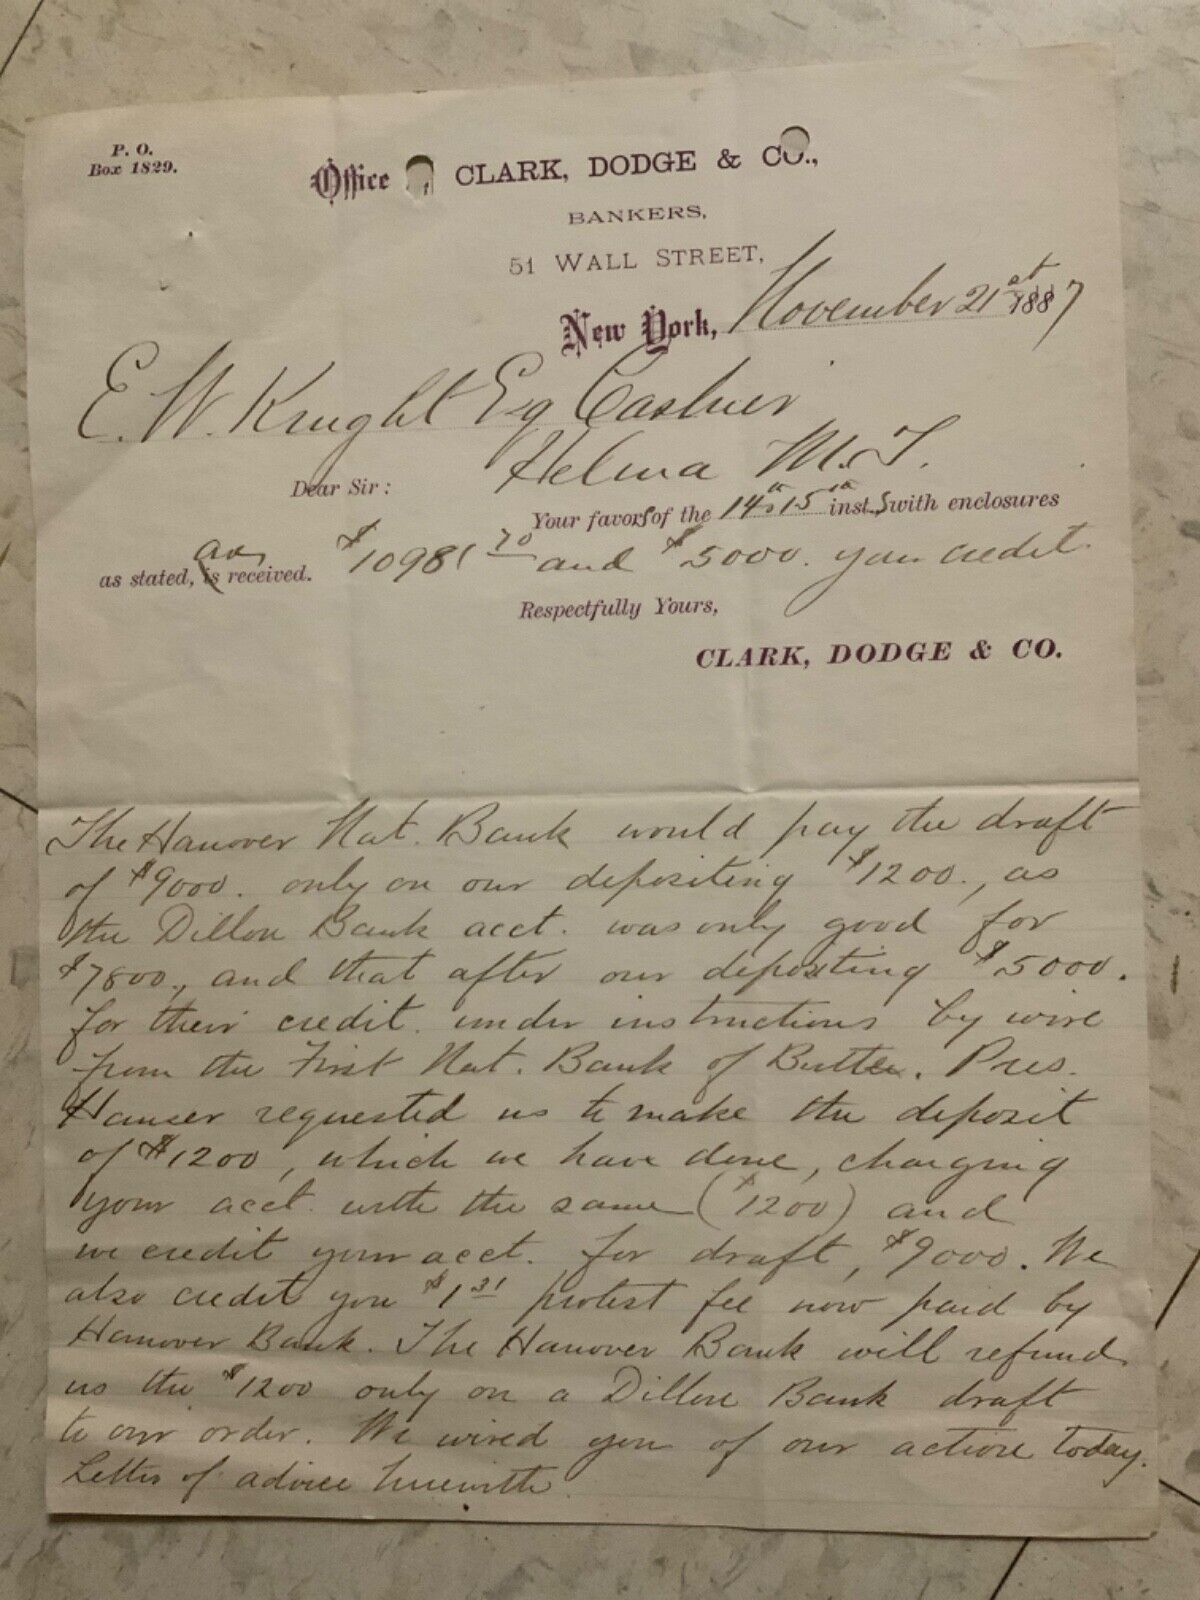 P. O.
Box 1829.
Office CLARK, DODGE & CO.,
BANKERS,
51 WALL STREET,
New York, November 21st 1887
E. W. Knight Esq Cashier
Helena M.T.
Dear Sir:
Your favors of the 14th & 15th inst., with enclosures
as stated, are received. $10981 70 and $5000. your credit.
Respectfully Yours,
CLARK, DODGE & CO.
The Hanover Nat. Bank would pay the draft
of $9000. only on our depositing $1200., as
the Dillon Bank acct. was only good for
$7800., and that after our depositing $5000.
for their credit. under instructions by wire
from the First Nat. Bank of Butte. Pres.
Hauser requested us to make the deposit
of $1200, which we have done, charging
your acct. with the same ($1200) and
we credit your acct. for draft, $9000. We
also credit you $1 31 protest fee now paid by
Hanover Bank. The Hanover Bank will refund
us the $1200 only on a Dillon Bank draft
to our order. We wired you of our action today.
Letter of advice herewith.